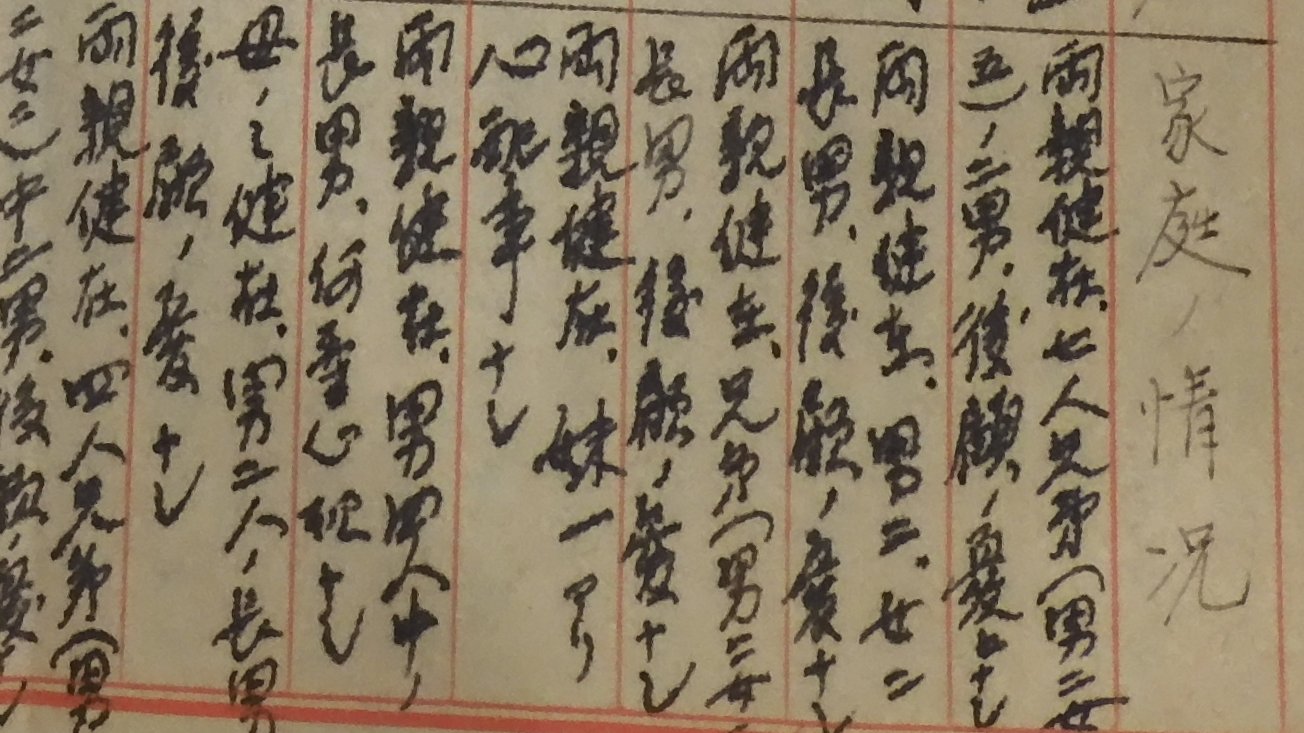 家庭ノ情況
両親健在、七人兄弟(男二女
五)ノ二男、後顧ノ憂ナシ
両親健在、男二、女二
長男、後顧ノ憂ナシ
両親健在、兄弟(男二女
長男、後顧ノ憂ナシ
両親健在、妹一アリ
心配事ナシ
両親健在、男四人中ノ
長男、何等心配ナシ
母ノミ健在、男二人ノ長男
後顧ノ憂ナシ
両親健在、四人兄弟(男
二女二)中二男、後顧ノ憂ナシ